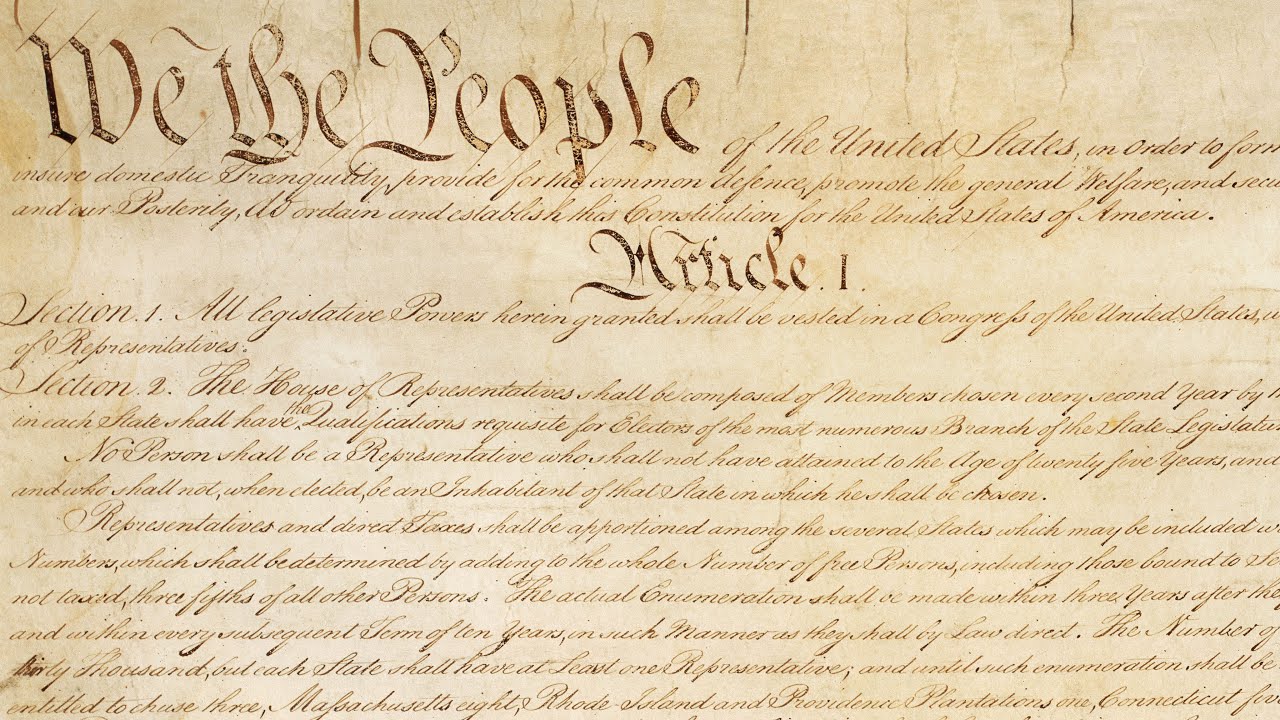 We the People of the United States, in Order to form
insure domestic Tranquility, provide for the common defence, promote the general Welfare, and secu
and our Posterity, do ordain and establish this Constitution for the United States of America.
Article. I.
Section. 1. All legislative Powers herein granted shall be vested in a Congress of the United States, w
of Representatives.
Section. 2. The House of Representatives shall be composed of Members chosen every second Year by t
in each State shall have the Qualifications requisite for Electors of the most numerous Branch of the State Legislatur
No Person shall be a Representative who shall not have attained to the Age of twenty five Years, and
and who shall not, when elected, be an Inhabitant of that State in which he shall be chosen.
Representatives and direct Taxes shall be apportioned among the several States which may be included w
Numbers, which shall be determined by adding to the whole Number of free Persons, including those bound to Se
not taxed, three fifths of all other Persons. The actual Enumeration shall be made within three Years after the
and within every subsequent Term of ten Years, in such Manner as they shall by Law direct. The Number of
thirty Thousand, but each State shall have at Least one Representative; and until such enumeration shall be
entitled to chuse three, Massachusetts eight, Rhode-Island and Providence Plantations one, Connecticut five